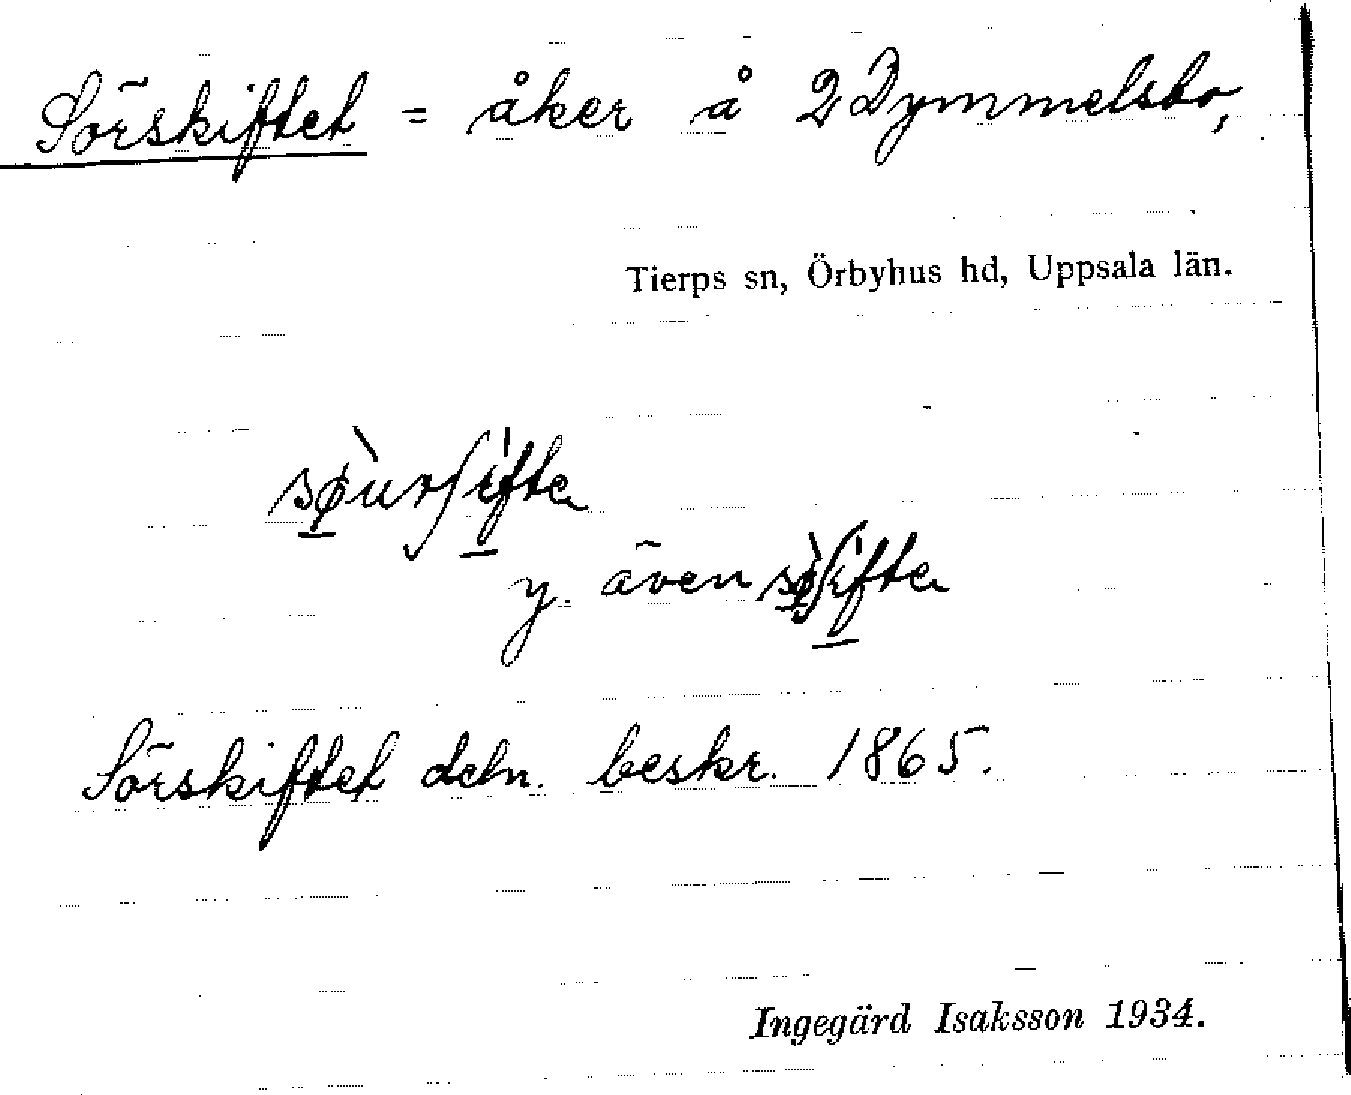 Sörskiftet = åker å 2 Dymmelsbo,
Tierps sn, Örbyhus hd, Uppsala län.
y. även
Sörskiftet deln. beskr. 1865.
Ingegärd Isaksson 1934.